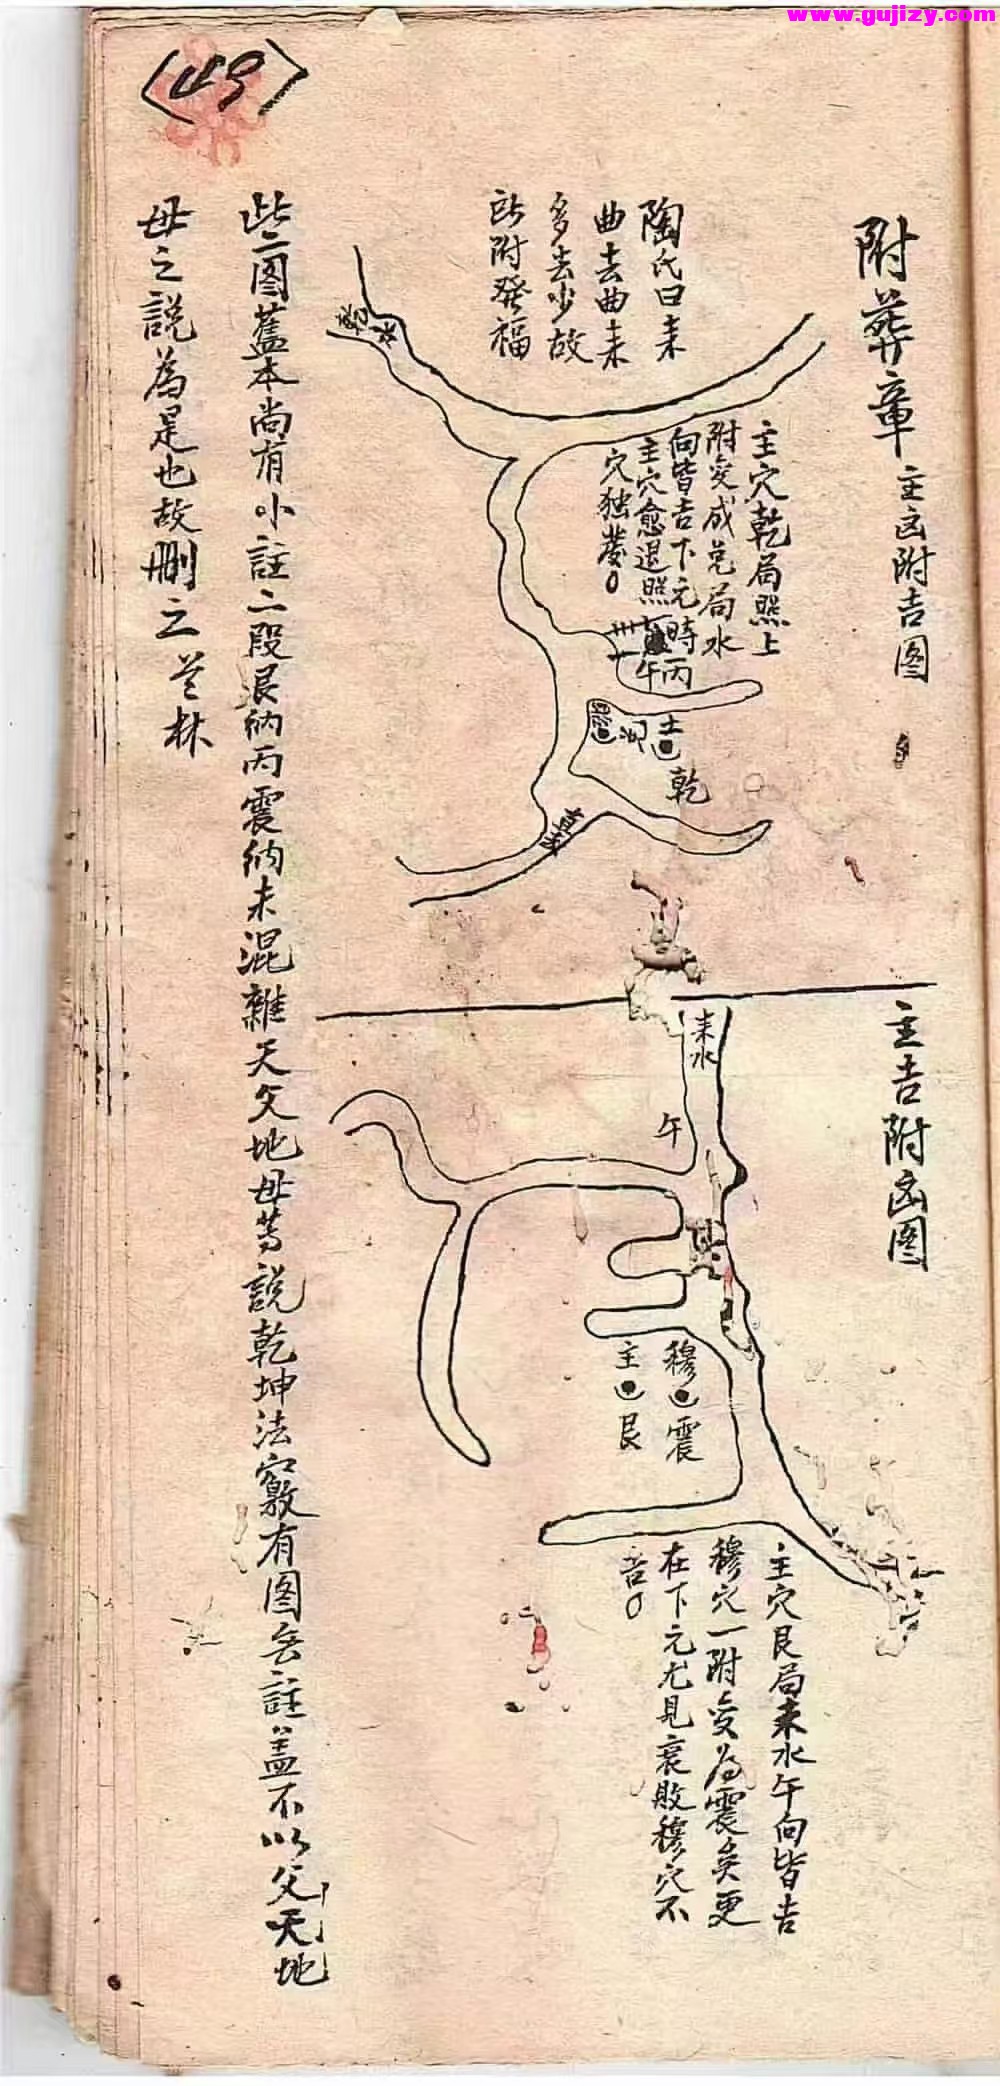 www.gujizy.com
49
附葬章 主凶附吉图
陶氏曰来
曲去曲来
多去少故
所附發福
主穴乾局照上
附变成兑局水
向皆吉下元時丙
主穴愈退照
穴独發
午
主
乾
主吉附凶图
来水
午
穆 震
主 艮
主穴艮局来水午向皆吉
穆穴一附变为震矣更
在下元尤見衰敗穆穴不
吉
此二图舊本尚有小註二段艮纳丙震纳未混雜天父地母等說乾坤法竅有图去註盖不以父天地
母之說為是也故删之 林